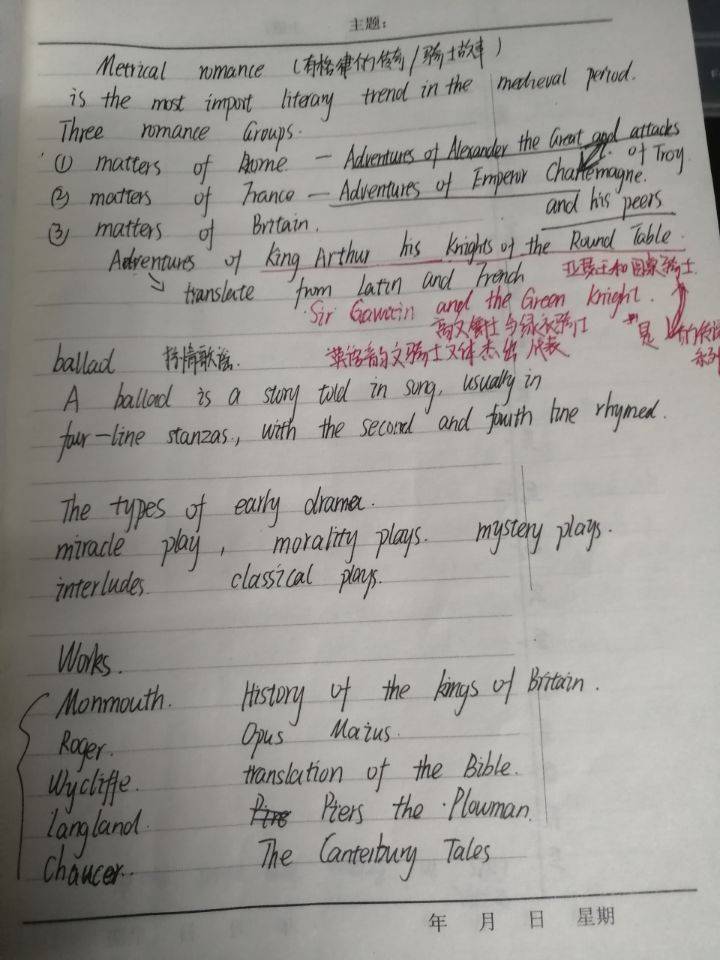 主题：
Metrical romance (有格律的传奇/骑士故事)
is the most import literary trend in the medieval period.
Three romance Groups.
① matters of Rome — Adventures of Alexander the Great and attacks
of Troy
② matters of France — Adventures of Emperor Charlemagne.
and his peers
③ matters of Britain.
Adventures of King Arthur his Knights of the Round Table.
亚瑟王和圆桌骑士
translate from Latin and French
Sir Gawain and the Green Knight.
高文爵士与绿衣骑士
是 的传说
系列
ballad 抒情歌谣.
英语韵文骑士文体杰出代表
A ballad is a story told in song, usually in
four-line stanzas, with the second and fourth line rhymed.
The types of early drama.
miracle play, morality plays. mystery plays.
interludes classical plays.
Works.
Monmouth. History of the kings of Britain.
Roger. Opus Maius.
Wycliffe. translation of the Bible.
Langland. Piers the Plowman.
Chaucer. The Canterbury Tales
年 月 日 星期